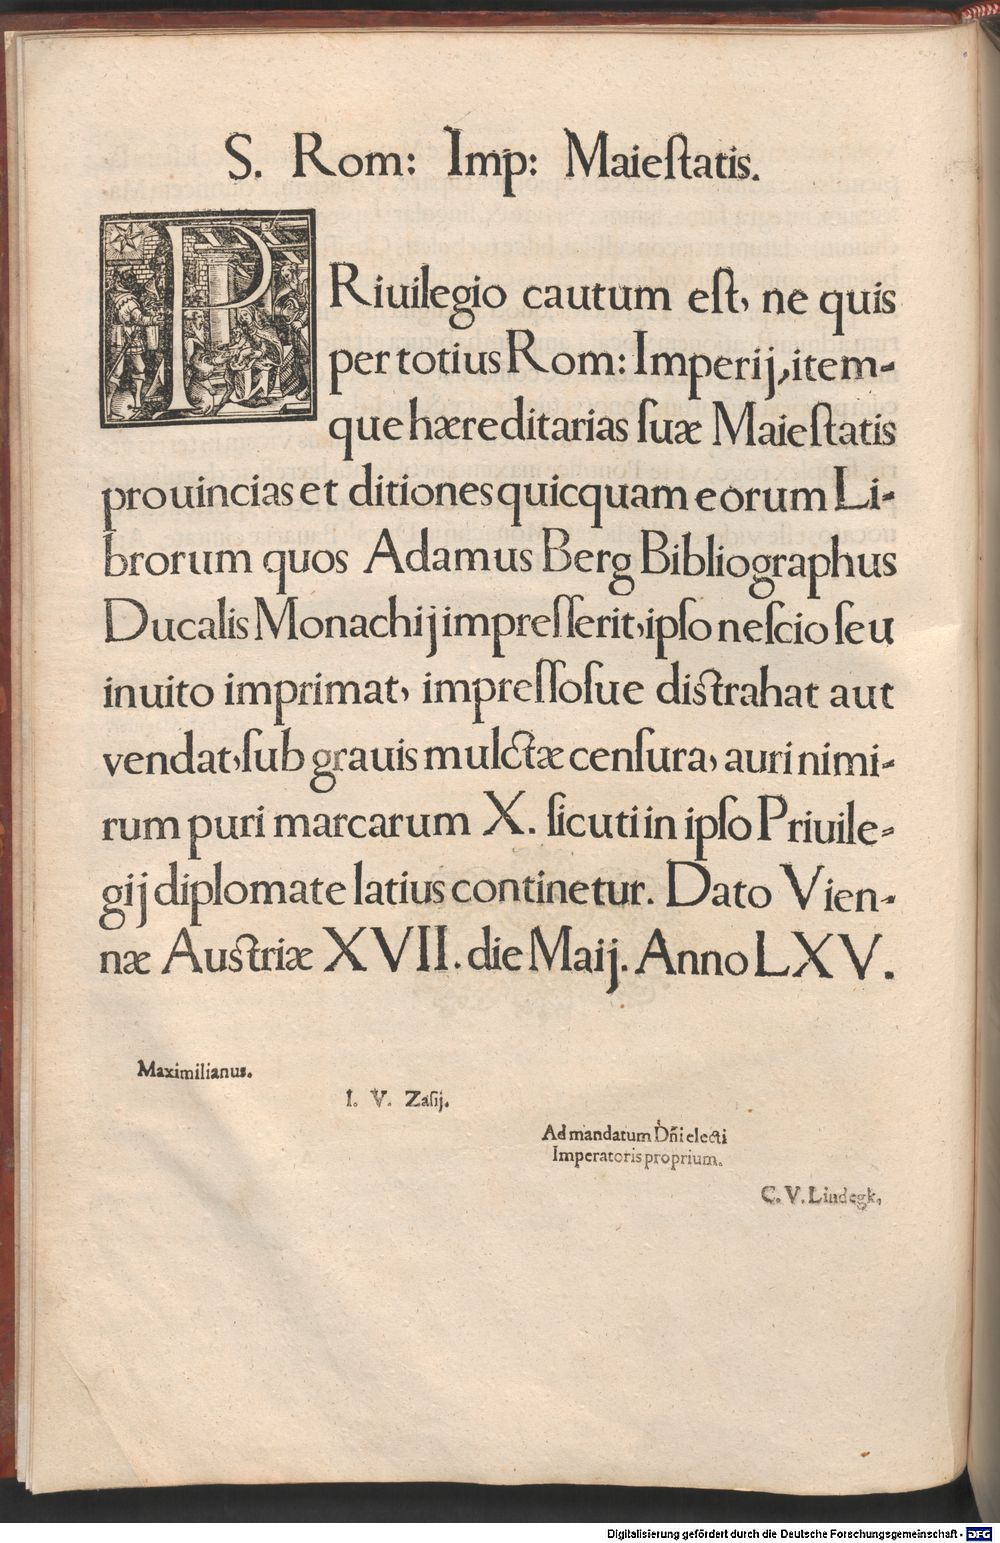 S. Rom: Imp: Maieſtatis.
PRiuilegio cautum eſt, ne quis
per totius Rom: Imperij, item-
que hæreditarias ſuæ Maieſtatis
prouincias et ditiones quicquam eorum Li-
brorum quos Adamus Berg Bibliographus
Ducalis Monachij impreſſerit, ipſo neſcio ſeu
inuito imprimat, impreſſoſue diſtrahat aut
vendat, ſub grauis mulctæ cenſura, auri nimi-
rum puri marcarum X. ſicuti in ipſo Priuile-
gij diplomate latius continetur. Dato Vien-
næ Auſtriæ XVII. die Maij. Anno LXV.
Maximilianus.
I. V. Zaſij.
Ad mandatum Dñi electi
Imperatoris proprium.
C. V. Lindegk,
Digitalisierung gefördert durch die Deutsche Forschungsgemeinschaft - DFG